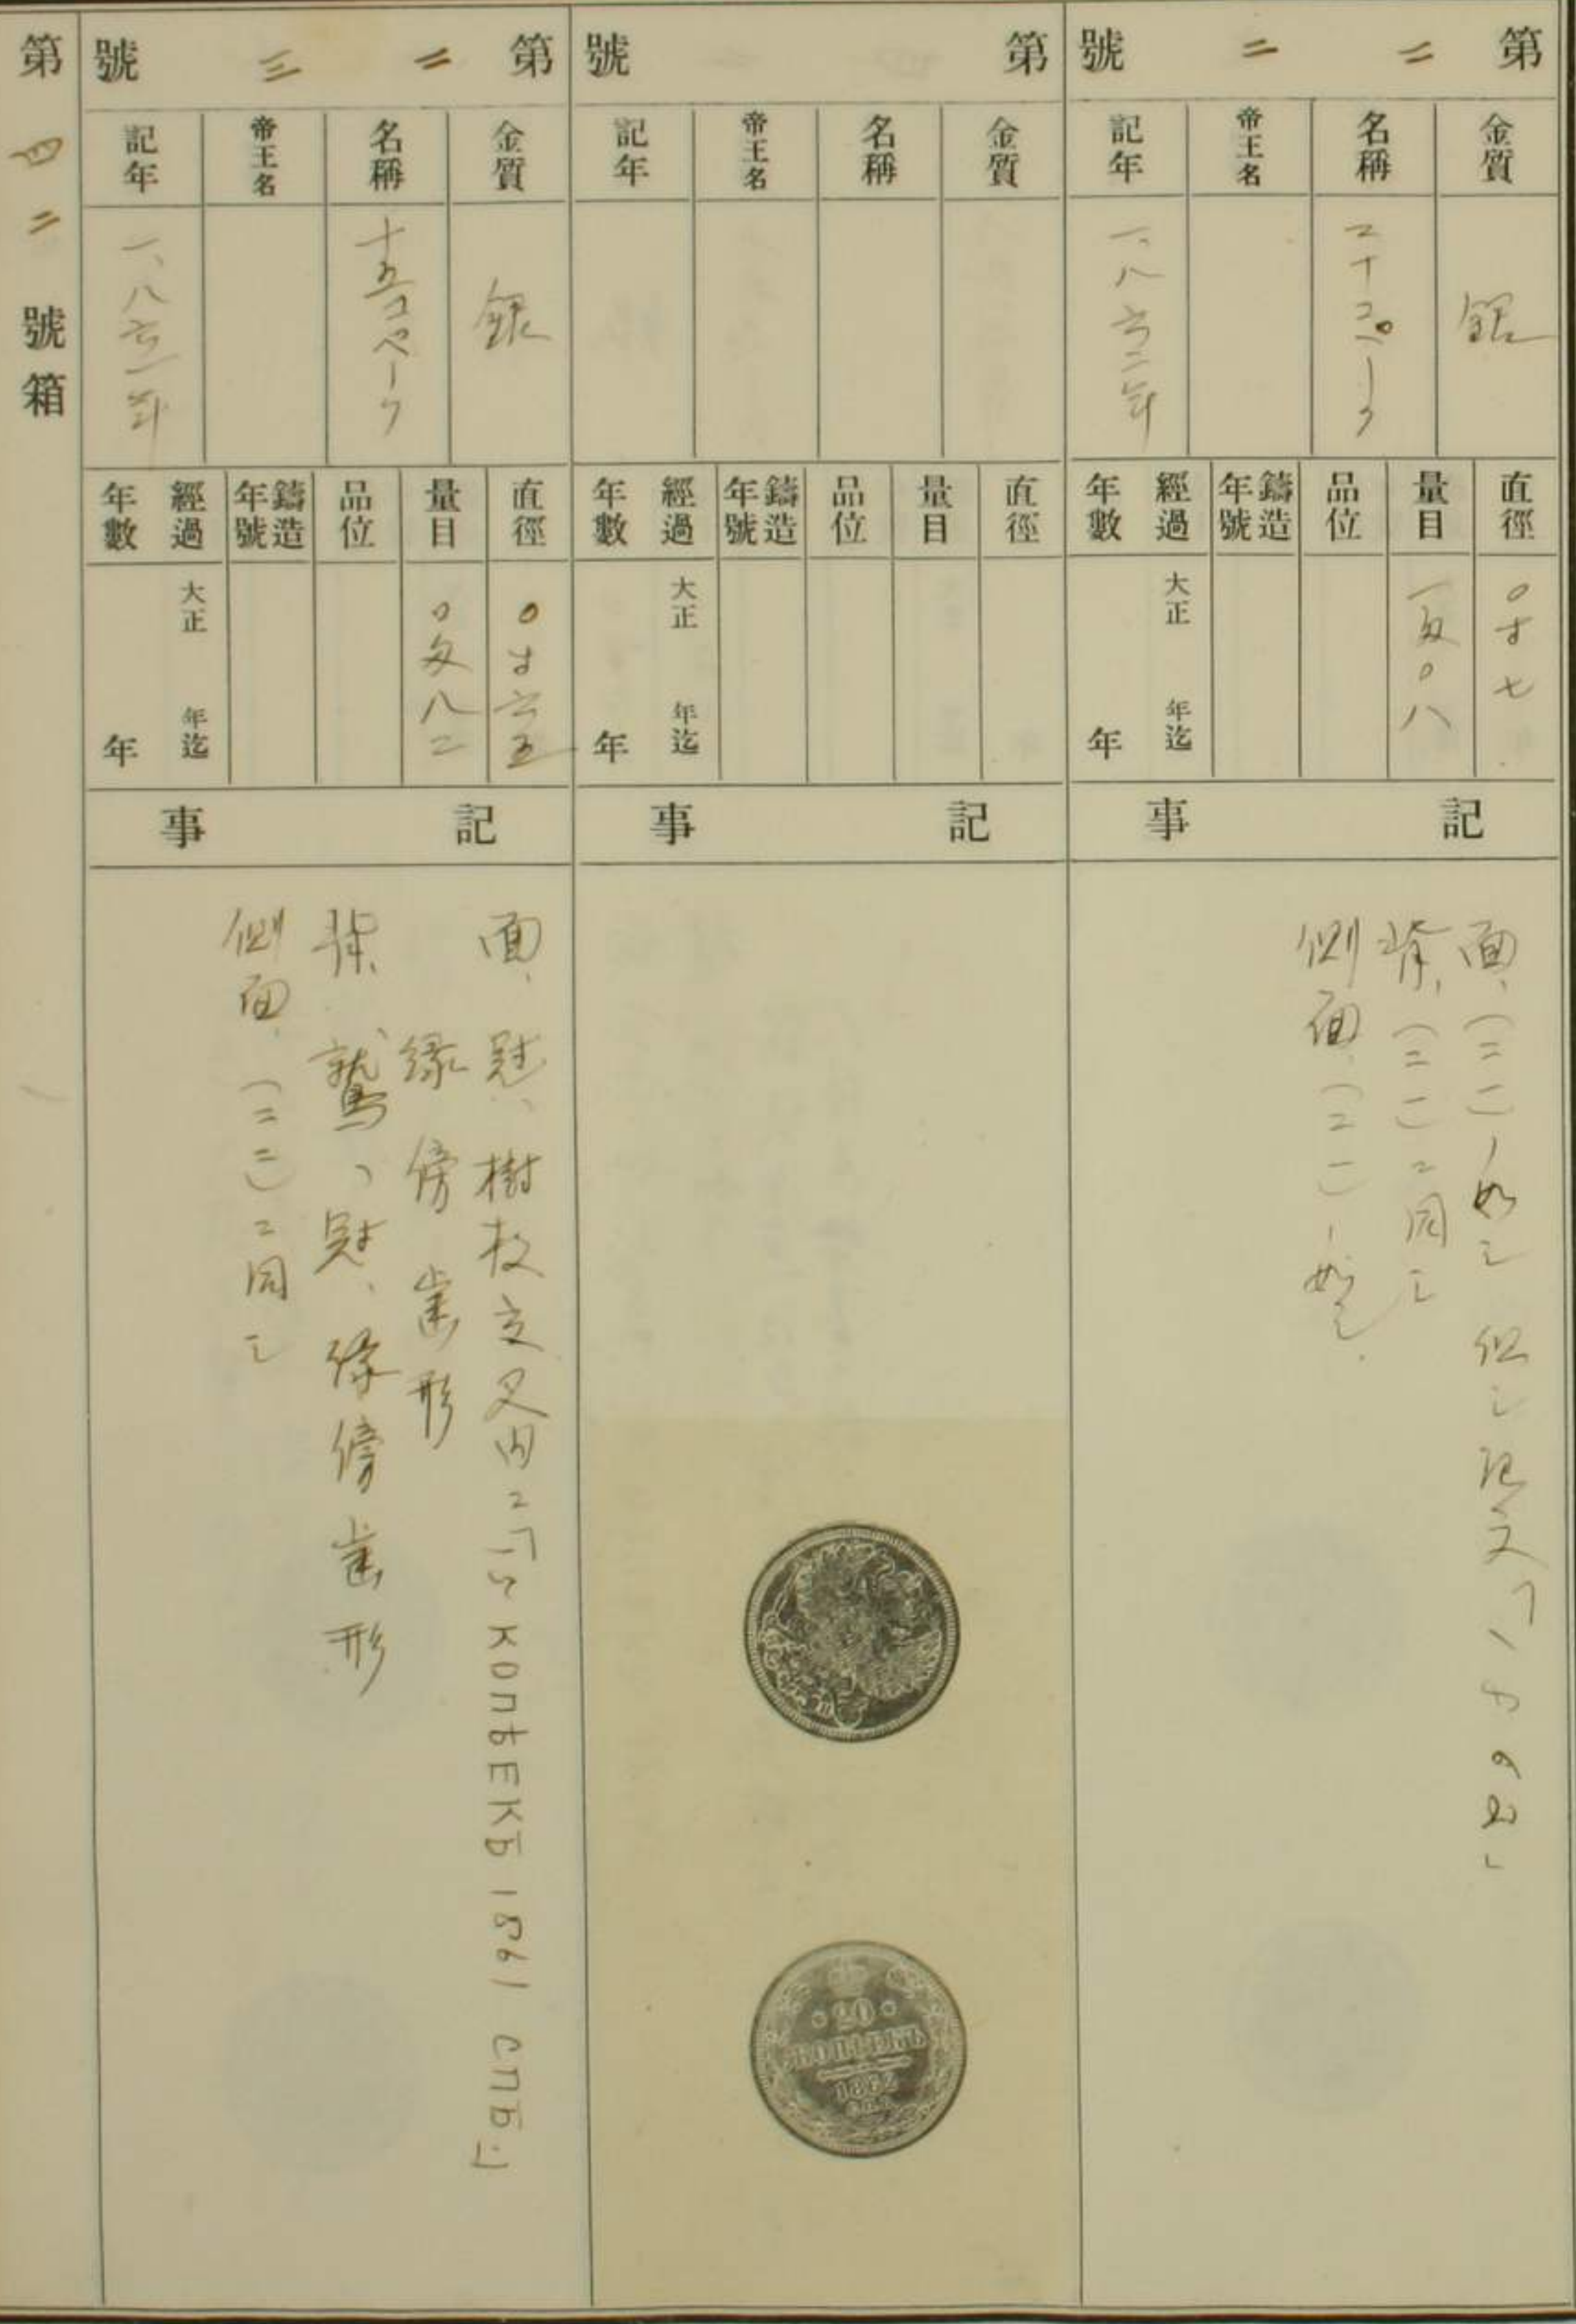 第二二號
金質
名稱
帝王名
記年
銀
二十コペーク
一、八六二年
直徑
量目
品位
鑄造年號
經過年數
〇寸七
一匁〇八
大正 年迄
年
記事
面、(二一)ノ如シ 但シ記文「1862」
背、(二一)ニ同シ
側面、(二一)ノ如シ
第 號
金質
名稱
帝王名
記年
直徑
量目
品位
鑄造年號
經過年數
大正 年迄
年
記事
20
КОПѢЕКЪ
1862
第二三號
金質
名稱
帝王名
記年
銀
十五コペーク
一、八六一年
直徑
量目
品位
鑄造年號
經過年數
〇寸六五
〇匁八二
大正 年迄
年
記事
面、冠、樹枝交叉内ニ「15 КОПѢЕКЪ 1861 СПБ」
緣傍歯形
背、鷲、冠、緣傍歯形
側面、(二二)ニ同シ
第四二號箱